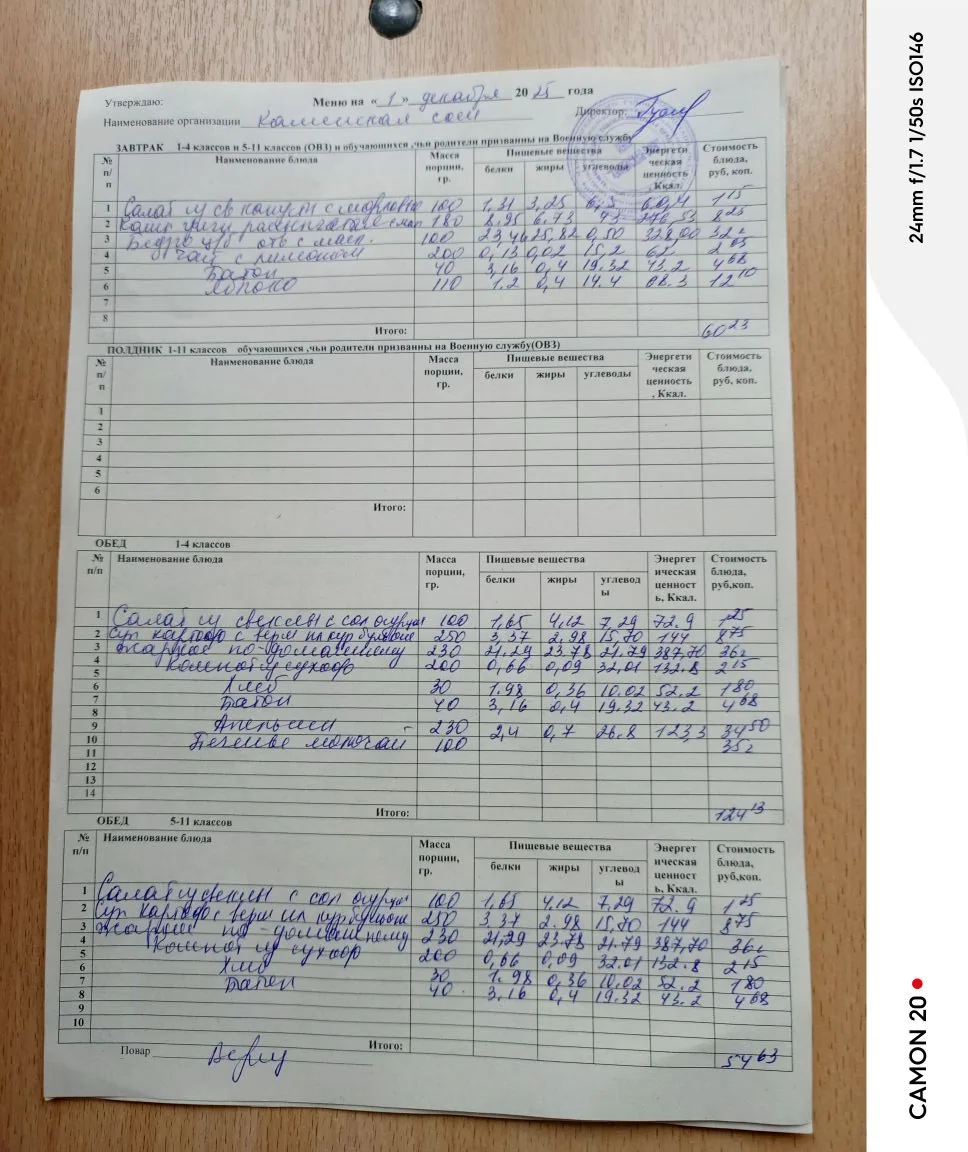 Утверждаю:
Меню на «1» декабря 2025 года
Наименование организации Каменская сош Директор:
ЗАВТРАК 1-4 классов и 5-11 классов (ОВЗ) и обучающихся ,чьи родители призванны на Военную службу
№ п/п Наименование блюда Масса порции, гр. Пищевые вещества белки жиры углеводы Энергетическая ценность, Ккал. Стоимость блюда, руб, коп.
1 Салат из св капуст с морковью 100 1,31 3,25 6,5 60,4 1 15
2 Каша 180 8,95 6,73 43 276,53 8 25
3 Бедро ц/б отв с масл. 100 23,46 25,82 0,50 328,00
4 Чай с лимоном 200 0,13 0,02 15,2 62
5 Батон 40 3,16 0,4 19.32 43.2 4 68
6 Яблоко 110 1.2 0,4 14.4 12 10
7
8
Итого: 60 23
ПОЛДНИК 1-11 классов обучающихся ,чьи родители призванны на Военную службу(ОВЗ)
№ п/п Наименование блюда Масса порции, гр. Пищевые вещества белки жиры углеводы Энергетическая ценность, Ккал. Стоимость блюда, руб, коп.
1
2
3
4
5
6
Итого:
ОБЕД 1-4 классов
№ п/п Наименование блюда Масса порции, гр. Пищевые вещества белки жиры углеводы Энергетическая ценность, Ккал. Стоимость блюда, руб,коп.
1 Салат из свеклы с сол огурцом 100 1,65 4,12 7,29 72.9 1 25
2 Суп картоф с верм 250 3,37 2,98 15,70 144 8 75
3 Жаркое по-домашнему 230 21.29 23.78 21.79 387,70
4 Компот из сухофр 200 0,66 0,09 32,01 132.8 2 15
5
6 Хлеб 30 1.98 0,36 10.02 52.2 1 80
7 Батон 40 3,16 0,4 19.32 43.2 4 68
8
9 Апельсин 230 2,4 0,7 26.8 123,3 34 50
10 Печенье 100
11
12
13
14
Итого: 124 13
ОБЕД 5-11 классов
№ п/п Наименование блюда Масса порции, гр. Пищевые вещества белки жиры углеводы Энергетическая ценность, Ккал. Стоимость блюда, руб,коп.
1 Салат из свеклы с сол огурцом 100 1,65 4,12 7,29 72.9 1 25
2 Суп картоф с верм 250 3,37 2.98 15.70 144 8 75
3 Жаркое по-домашнему 230 21,29 23.78 21.79 387,70
4 Компот из сухофр 200 0,66 0,09 32.01 132.8 2 15
5
6 Хлеб 30 1.98 0,36 10.02 52.2 1 80
7 Батон 40 3,16 0,4 19.32 43.2 4 68
8
9
10
Итого: 54 63
Повар
24mm f/1.7 1/50s ISO146
CAMON 20